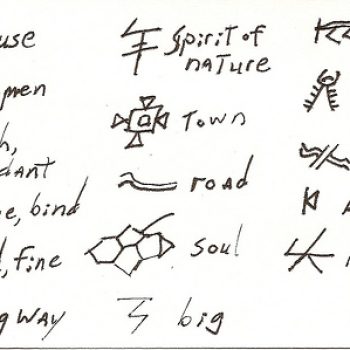 use
men
h,
dant
e, bind
d, fine
g way
spirit of
nature
town
road
soul
big